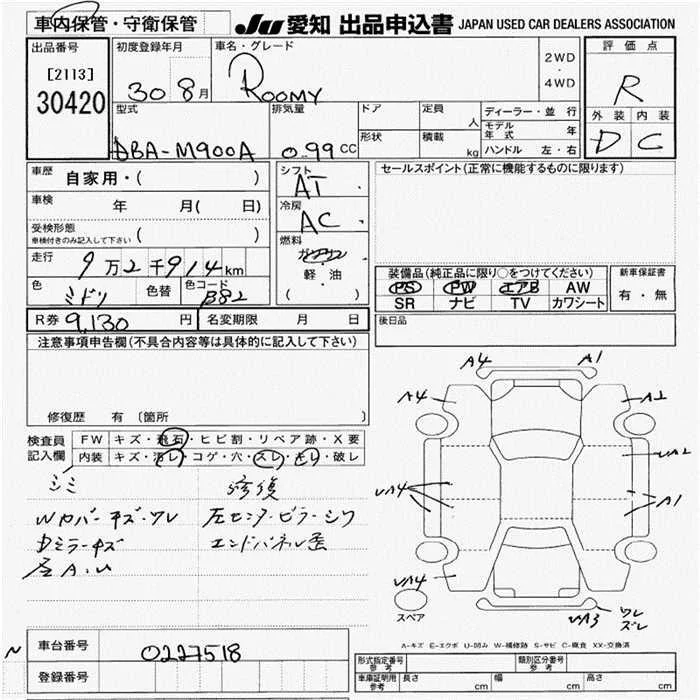 車内保管・守衛保管
JU 愛知 出品申込書 JAPAN USED CAR DEALERS ASSOCIATION
出品番号
[2113]
30420
初度登録年月
30 8月
車名・グレード
ROOMY
2WD
・
4WD
評価点
R
外装 内装
D C
型式
DBA-M900A
排気量
0.99 CC
ドア
形状
定員 人
積載 kg
ディーラー・並行
モデル年式 年
ハンドル 左・右
車歴
自家用・( )
車検 年 月( 日)
受検形態
車検付きのみ記入して下さい ( )
走行
9万2千914km
色 ミドリ 色替 色コード B82
シフト
AT
冷房
AC
燃料
ガソリン
軽・油
( )
セールスポイント(正常に機能するものに限ります)
装備品(純正品に限り○をつけてください)
PS PW エアB AW
SR ナビ TV カワシート
新車保証書
有・無
R券 9,130 円 名変期限 月 日
後日品
注意事項申告欄(不具合内容等は具体的に記入して下さい)
修復歴 有 〔箇所
検査員
記入欄
FW キズ・飛石・ヒビ割・リペア跡・X要
内装 キズ・汚レ・コゲ・穴・スレ・キレ・破レ
シミ
Wカバーキズ・ワレ
Dミラーキズ
修復
左センターピラーシワ
エンドパネル歪
A4 A1
A4 A2
UA2
UA4
A1
UA4
UA3 ワレ
ズレ
スペア
A-キズ E-エクボ U-凹み W-補修跡 S-サビ C-腐食 XX-交換済
N
車台番号 0227518
登録番号
型式指定番号
参考
類別区分番号
参考
車庫証明用
参考
長さ cm 幅 cm 高さ cm